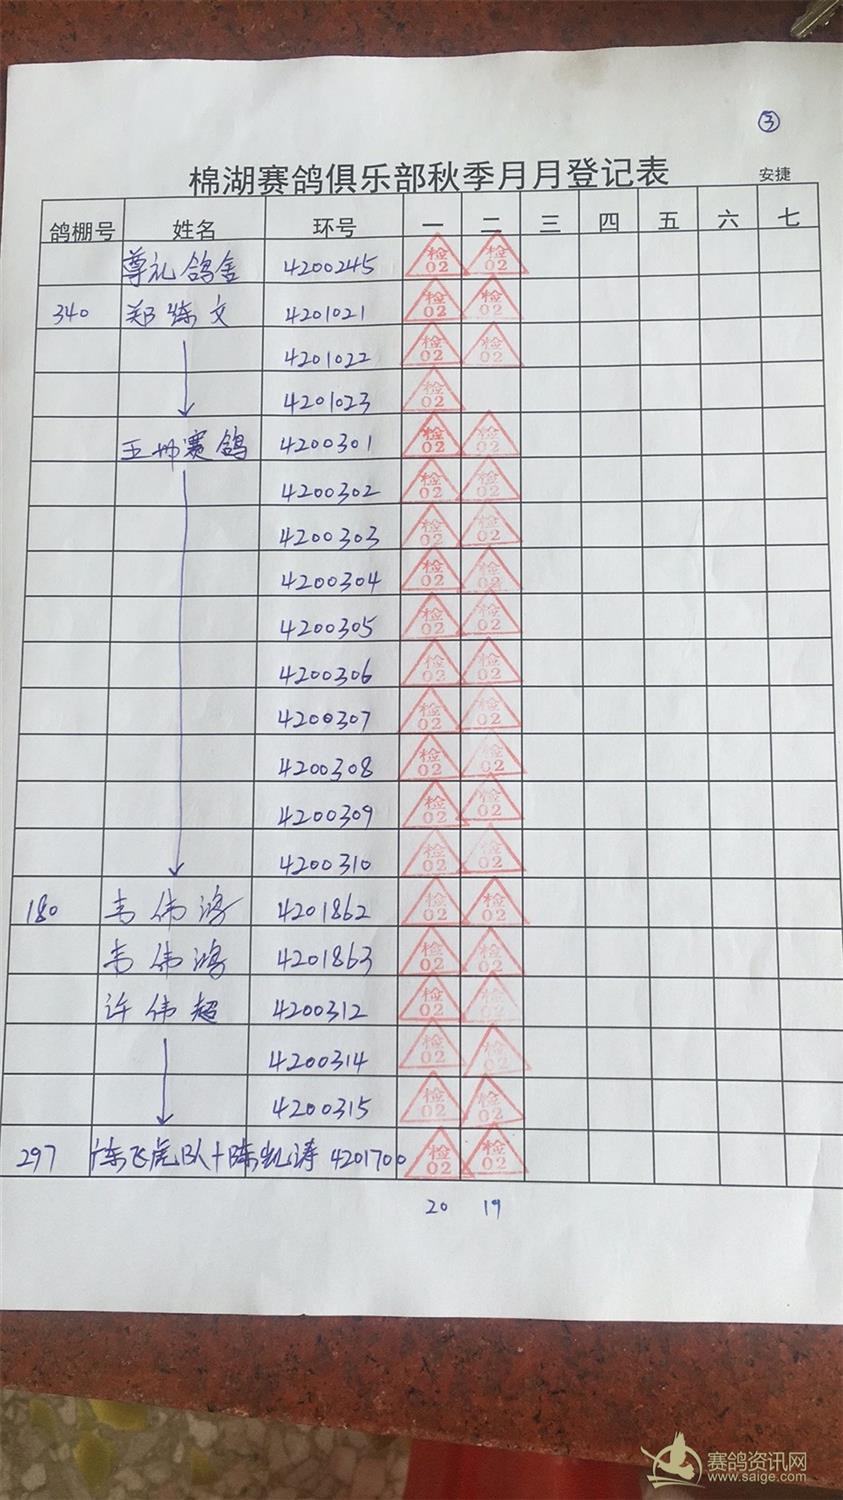 ③
棉湖赛鸽俱乐部秋季月月登记表 安捷
鸽棚号 姓名 环号 一 二 三 四 五 六 七
尊礼鸽舍 4200245 检02 检02
340 郑炼文 4201021 检02 检02
4201022 检02 检02
4201023 检02
王帅赛鸽 4200301 检02 检02
4200302 检02 检02
4200303 检02 检02
4200304 检02 检02
4200305 检02 检02
4200306 检02 检02
4200307 检02 检02
4200308 检02 检02
4200309 检02 检02
4200310 检02 检02
180 韦伟鸿 4201862 检02 检02
韦伟鸿 4201863 检02 检02
许伟超 4200312 检02 检02
4200314 检02 检02
4200315 检02 检02
297 陈飞虎队+陈凯涛 4201700 检02 检02
20 19
赛鸽资讯网
www.saige.com